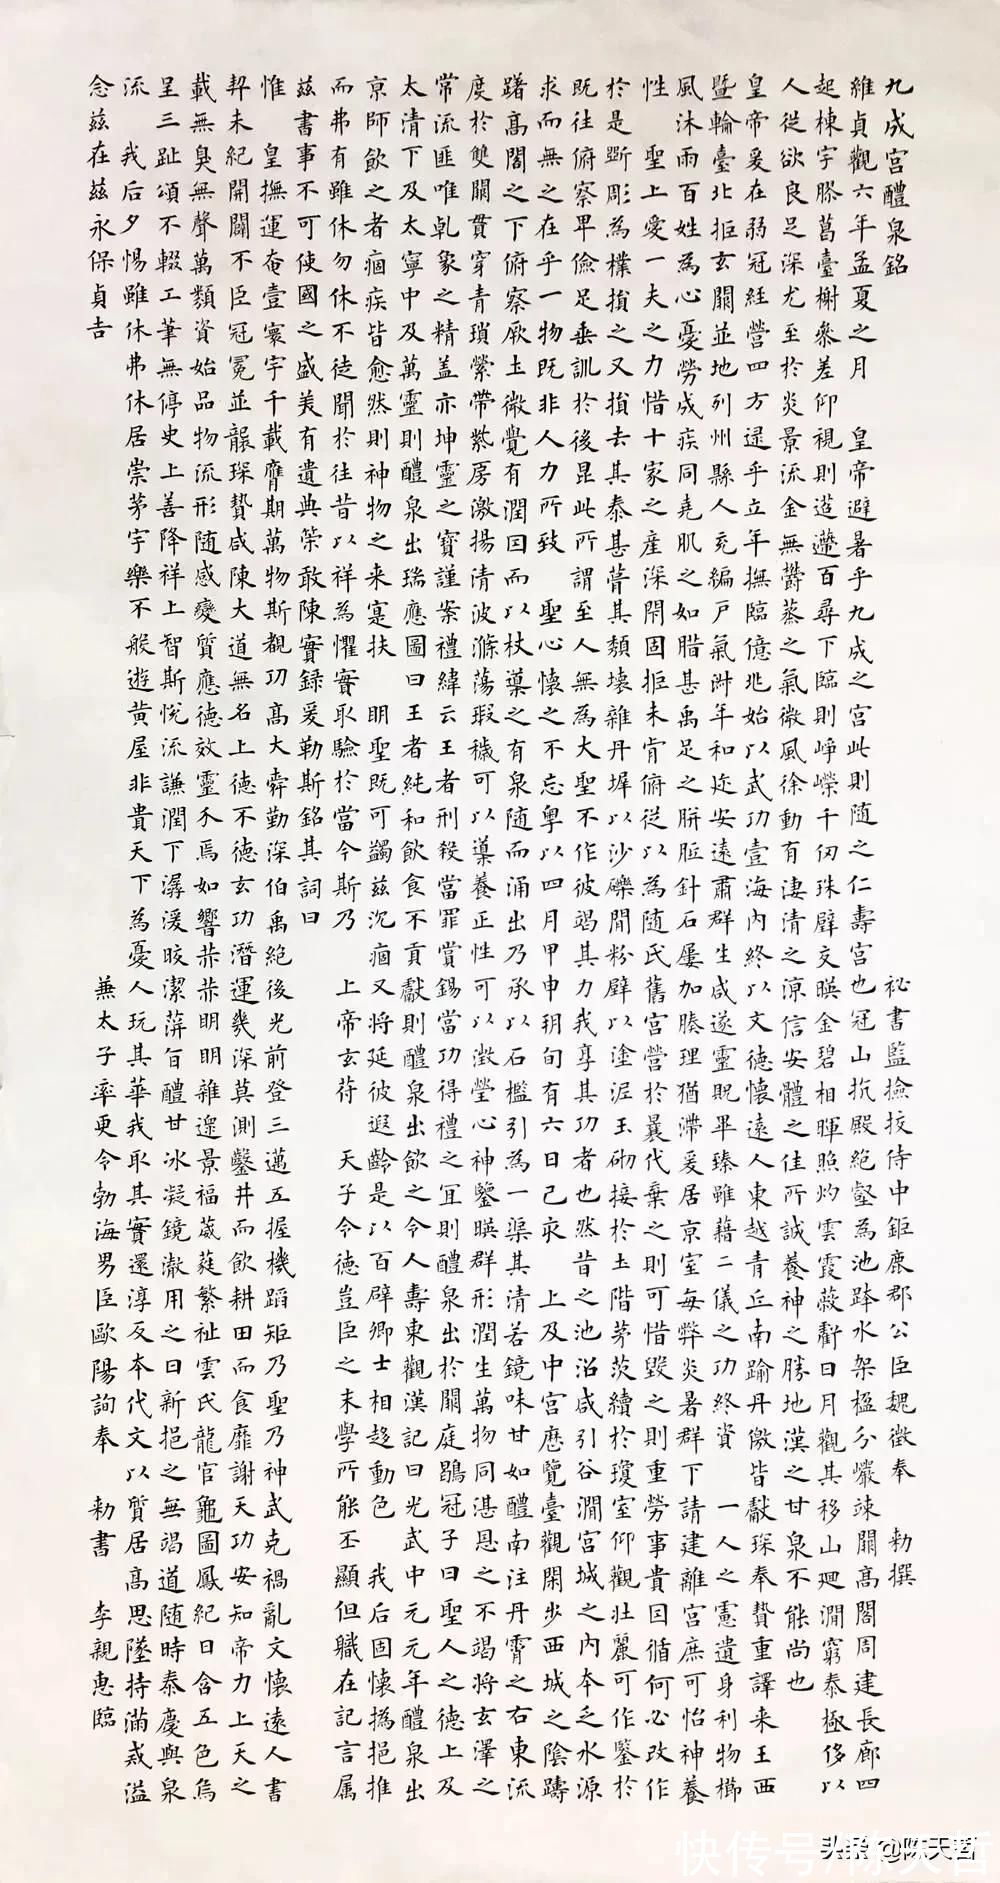 九成宮醴泉銘 秘書監撿挍侍中鉅鹿郡公臣魏徵奉 勅撰
維貞觀六年孟夏之月 皇帝避暑乎九成之宮此則随之仁壽宮也冠山抗殿絕壑為池跨水架楹分巖竦闕高閣周建長廊四
起棟宇膠葛臺榭參差仰視則迢遰百尋下臨則崢嶸千仞珠壁交暎金碧相暉照灼雲霞蔽虧日月觀其移山迴澗窮泰極侈以
人從欲良足深尤至於炎景流金無鬱蒸之氣微風徐動有淒清之涼信安體之佳所誠養神之勝地漢之甘泉不能尚也
皇帝爰在弱冠經營四方逮乎立年撫臨億兆始以武功壹海內終以文德懷遠人東越青丘南踰丹徼皆獻琛奉贄重譯来王西
暨輪臺北拒玄闕並地列州縣人充編戶氣淑年和迩安遠肅群生咸遂靈貺畢臻雖藉二儀之功終資 一人之憲遺身利物櫛
風沐雨百姓為心憂勞成疾同堯肌之如腊甚禹足之胼胝針石屢加腠理猶滯爰居京室每弊炎暑群下請建離宮庶可怡神養
性 聖上愛一夫之力惜十家之產深閇固拒未肯俯從以為随氏舊宮營於曩代棄之則可惜毀之則重勞事貴因循何必改作
於是斲彫為樸損之又損去其泰甚葺其頹壞雜丹墀以沙礫間粉壁以塗泥玉砌接於土階茅茨續於瓊室仰觀壯麗可作鑒於
既往俯察卑儉足垂訓於後昆此所謂至人無為大聖不作彼竭其力我享其功者也然昔之池沼咸引谷澗宮城之內本乏水源
求而無之在乎一物既非人力所致 聖心懷之不忘粵以四月甲申朔旬有六日己亥 上及中宮歷覽臺觀閑步西城之陰躊
躇高閣之下俯察厥土微覺有潤因而以杖導之有泉随而涌出乃承以石檻引為一渠其清若鏡味甘如醴南注丹霄之右東流
度於雙闕貫穿青瑣縈帶紫房激揚清波滌蕩瑕穢可以導養正性可以澂瑩心神鑒暎群形潤生萬物同湛恩之不竭將玄澤之
常流匪唯乹象之精盖亦坤靈之寶謹案禮緯云王者刑殺當罪賞錫當功得禮之宜則醴泉出於闕庭鶡冠子曰聖人之德上及
太清下及太寧中及萬靈則醴泉出瑞應圖曰王者純和飲食不貢獻則醴泉出飲之令人壽東觀漢記曰光武中元元年醴泉出
京師飲之者痼疾皆愈然則神物之来寔扶 明聖既可蠲兹沉痼又將延彼遐齡是以百辟卿士相趍動色 我后固懷撝挹推
而弗有雖休勿休不徒聞於往昔以祥為懼實取驗於當今斯乃 上帝玄苻 天子令德豈臣之末學所能丕顯但職在記言属
兹書事不可使國之盛美有遺典策敢陳實録爰勒斯銘其詞曰
惟 皇撫運奄壹寰宇千載膺期萬物斯覩功高大舜勤深伯禹絕後光前登三邁五握機蹈矩乃聖乃神武克禍亂文懷遠人書
契未紀開闢不臣冠冕並襲琛贄咸陳大道無名上德不德玄功潛運幾深莫測鑿井而飲耕田而食靡謝天功安知帝力上天之
載無臭無聲萬類資始品物流形随感變質應德效靈介焉如響赫赫明明雜遝景福葳蕤繁祉雲氏龍官龜圖鳳紀日含五色烏
呈三趾頌不輟工筆無停史上善降祥上智斯悅流謙潤下潺湲皎潔蓱旨醴甘冰凝鏡澈用之日新挹之無竭道随時泰慶與泉
流 我后夕惕雖休弗休居崇茅宇樂不般遊黃屋非貴天下為憂人玩其華我取其實還淳反本代文以質居高思墜持滿戒溢
念兹在兹永保貞吉 兼太子率更令勃海男臣歐陽詢奉 勅書 李親惠臨
头条 @陈天哲
快传号/陈天哲